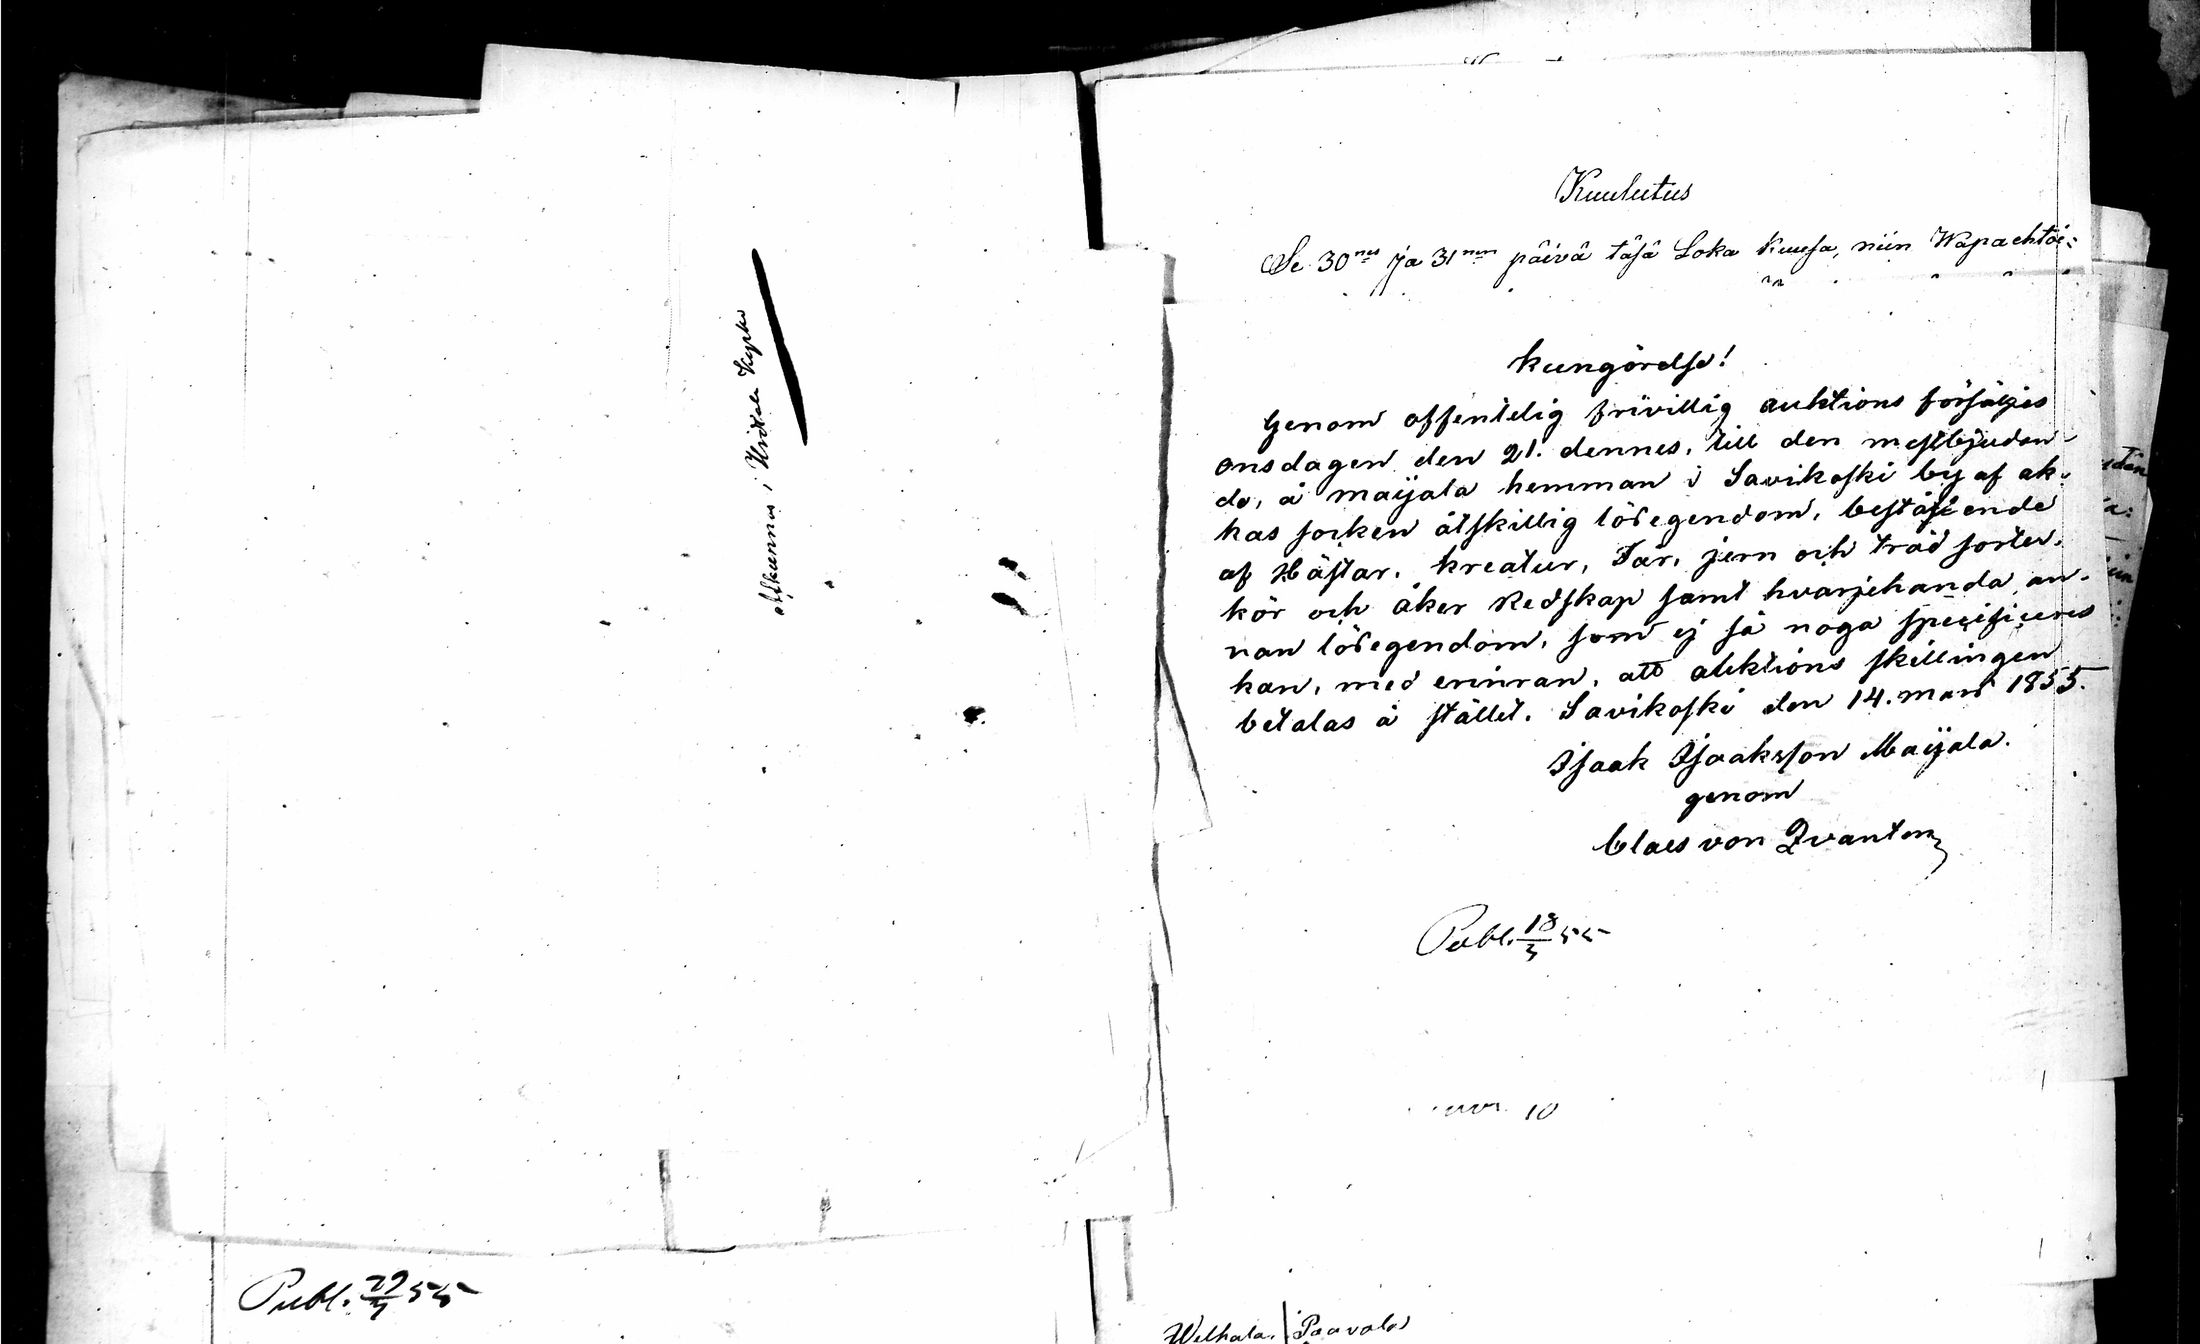 afkunnas i Urdiala Kyrka
Publ. 29/4 55
Kuulutus
Se 30nes ja 31nen päivä täsä Loka Kuusa, niin Wapaehtoi=
Kungörelse!
Genom offentelig frivillig auktions försäljes
onsdagen den 21. dennes, till den mestbjudan-
de, å maijala hemman i Savikoski by af ak-
kas socken åtskillig lösegendom, bestående
af Hästar, kreatur, Får, jern och träd sorter,
kör och åker Redskap samt hvarjehanda an-
nan lösegendom, som ej så noga specificeras
kan, med erinran, att auktions skillingen
betalas å stället. Savikoski den 14. mars 1855.
Isaak Isaaksson Maijala.
genom
Claes von Qvanten
Publ. 18/3 55
10
Welhala, Paavola